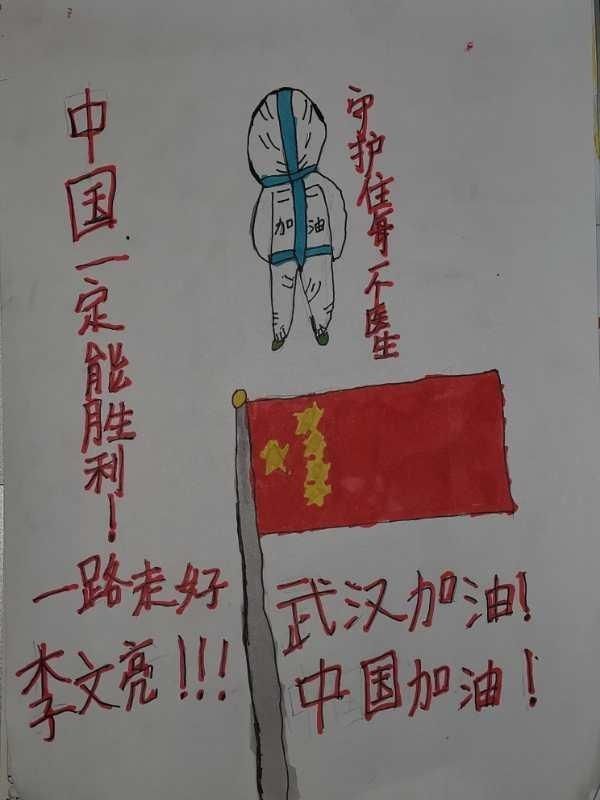 中国一定能胜利！
加油
守护住每一个医生
一路走好
李文亮！！！
武汉加油！
中国加油！